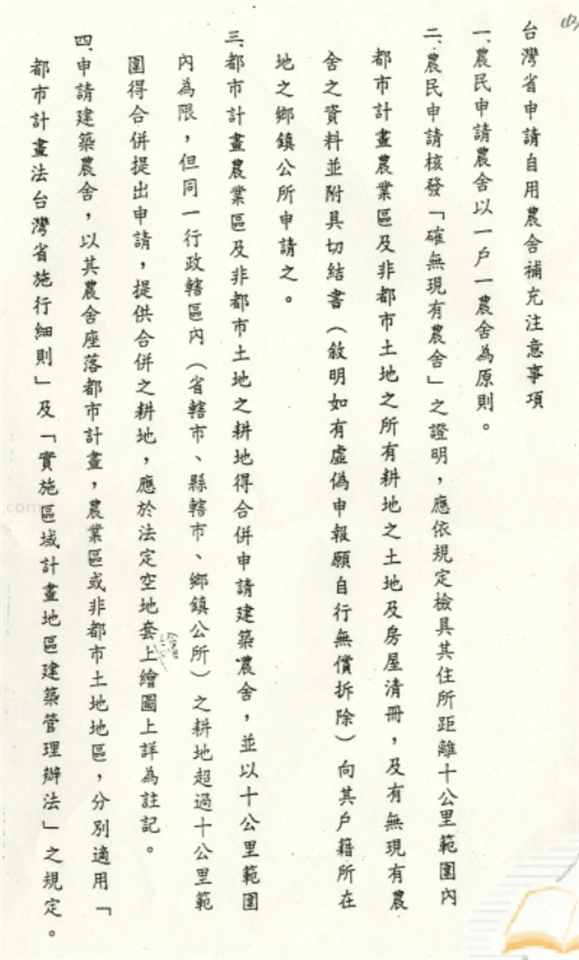 台灣省申請自用農舍補充注意事項
一、農民申請農舍以一戶一農舍為原則。
二、農民申請核發「確無現有農舍」之證明，應依規定檢具其住所距離十公里範圍內
都市計畫農業區及非都市土地之所有耕地之土地及房屋清冊，及有無現有農
舍之資料並附具切結書（敘明如有虛偽申報願自行無償拆除）向其戶籍所在
地之鄉鎮公所申請之。
三、都市計畫農業區及非都市土地之耕地得合併申請建築農舍，並以十公里範圍
內為限，但同一行政轄區內（省轄市、縣轄市、鄉鎮公所）之耕地超過十公里範
圍得合併提出申請，提供合併之耕地，應於法定空地套上繪圖上詳為註記。
四、申請建築農舍，以其農舍座落都市計畫，農業區或非都市土地地區，分別適用「
都市計畫法台灣省施行細則」及「實施區域計畫地區建築管理辦法」之規定。
com